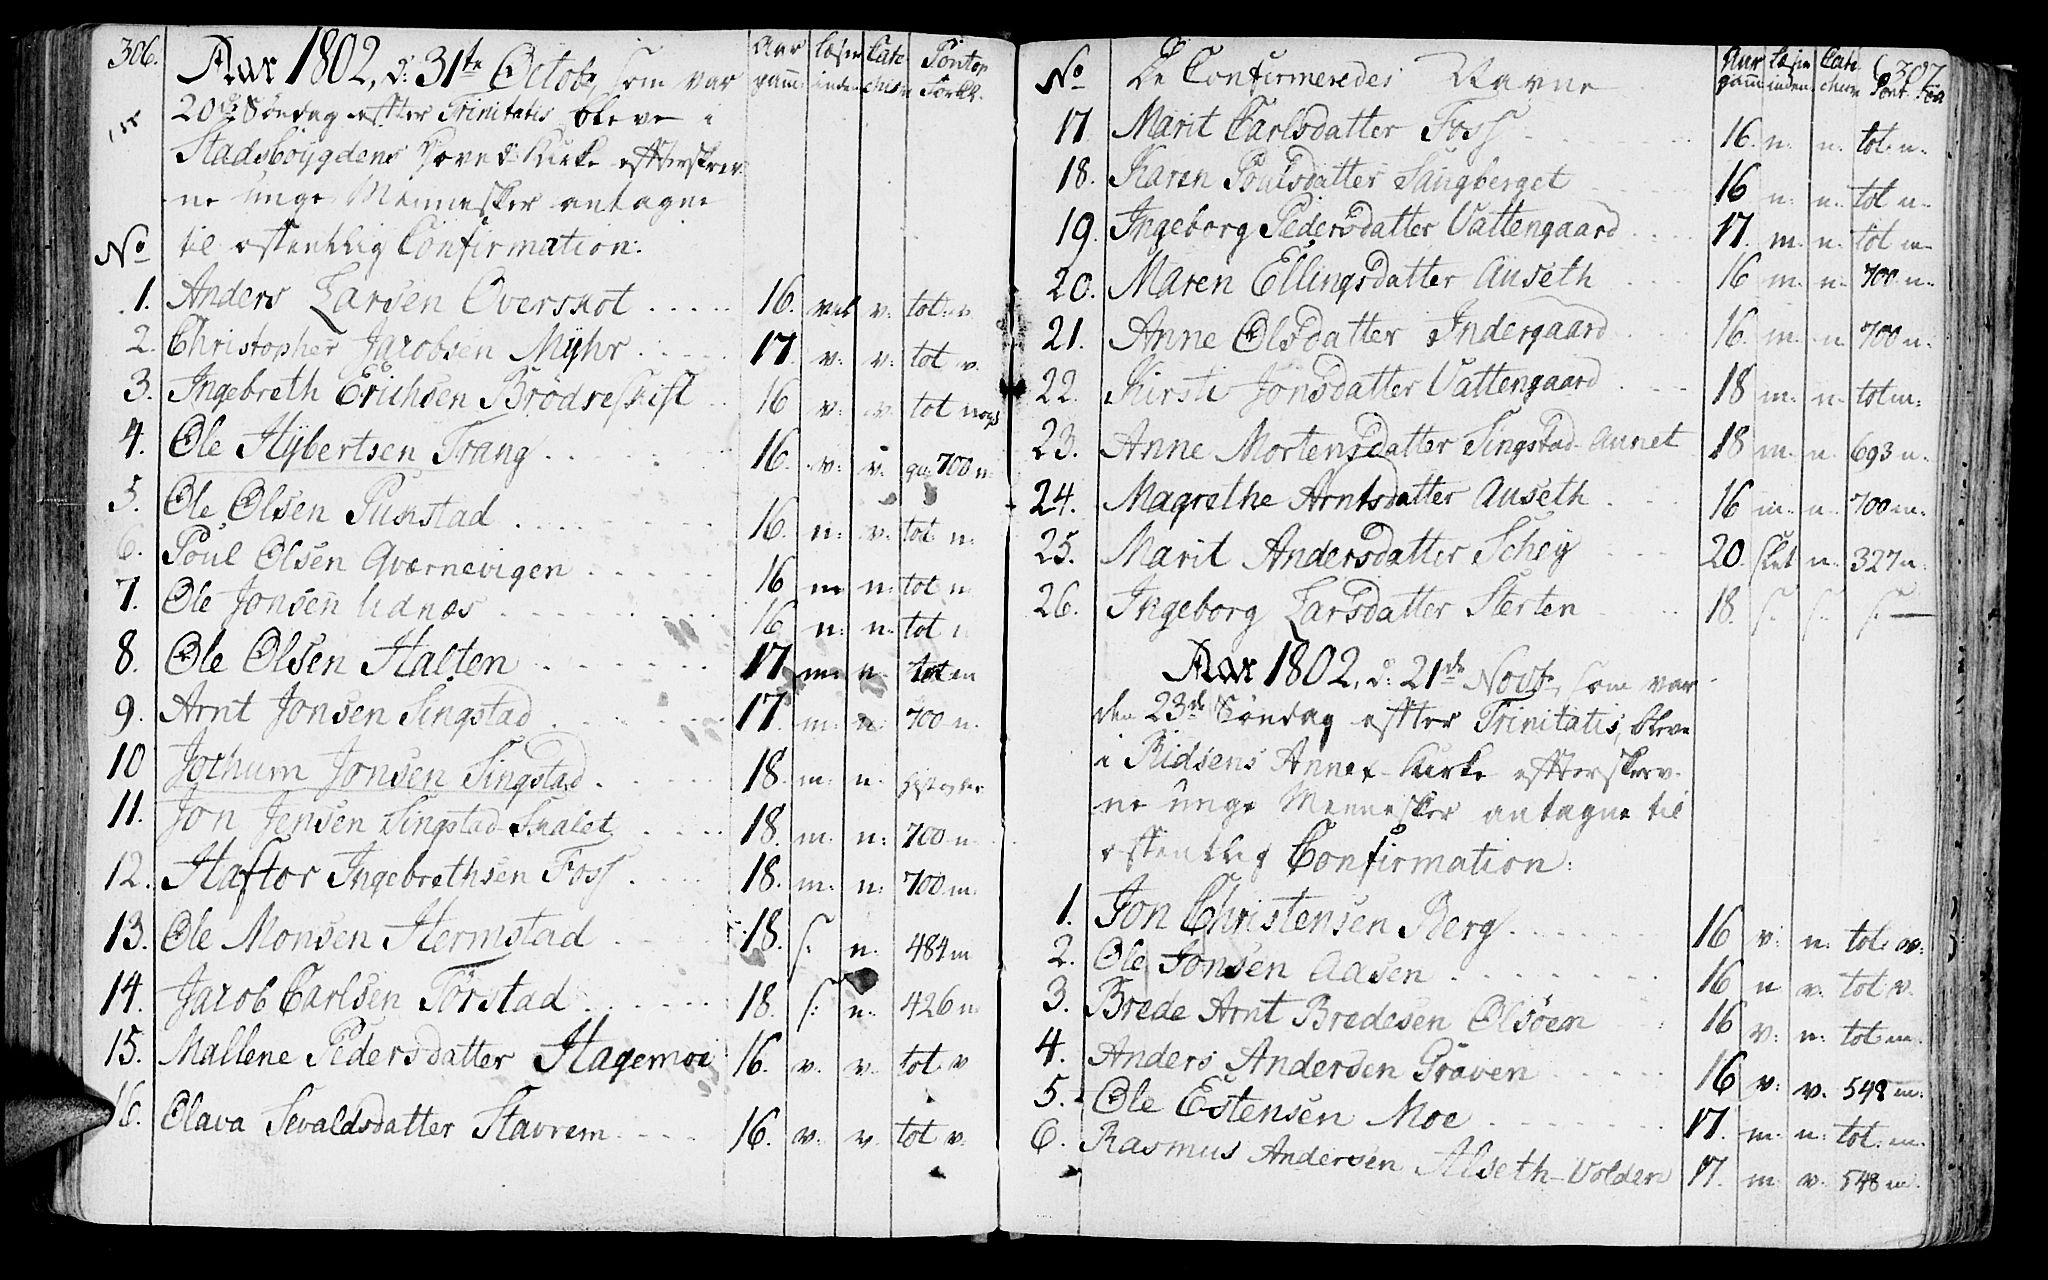 306.
Aar 1802, d: 31te Octobr, som var
20de Söndag effter Trinitatis bleve i
Stadsböygdens Hoved Kirke effterskrev-
ne unge Mennesker antagne
til offentlig Confirmation:
No Aar gaml. læser inden Catechism Pontop. Forkl.
1. Anders Larsen Overskot 16. vel v: tot: v
2. Christopher Jacobsen Myhr 17. v: v: tot v.
3. Ingebreth Erichsen Brödreskift 16 v: v. tot
4. Ole Hybertsen Trang 16. v: v. qu. 700 n
5. Ole Olsen Pukstad 16. n: v. tot. n.
6. Poul Olsen Qværnevigen 16 m n: tot n.
7. Ole Jonsen Udnæs 16. n: n: tot
8. Ole Olsen Halten 17 m n. tot m
9. Arnt Jonsen Singstad 17. m: n: 700 n.
10 Jochum Jonsen Singstad 18. m: n:
11. Jon Jensen Singstad-Skalet 18. m: n: 700 n
12. Haftor Ingebrethsen Foss 18. m: n: 700 m.
13. Ole Monsen Hermstad 18. s: n. 484 m
14. Jacob Carlsen Törstad 18. s: n. 426 n.
15. Mallene Pedersdatter Hagemoe 16. v. v. tot. v
16. Olava Sevaldsdatter Stavrem 16. v: v. tot v.
307
No De Confirmeredes Navne Aar gaml læser inden Catechism Pont. For
17. Marit Carlsdatter Foss 16. n. n. tot. n.
18. Karen Poulsdatter Saugberget 16 n: n. tot n.
19. Ingeborg Pedersdatter Vattengaard 17. m. n: tot m
20. Maren Ellingsdatter Auseth 16 m. n. 700 n.
21. Anne Olsdatter Indergaard 16. m. n 700 n.
22. Kirsti Jonsdatter Vattengaard 18 m: n. tot m:
23. Anne Mortensdatter Singstad-Aunet 18 m: n. 693 n.
24. Magrethe Arntsdatter Auseth 16 m. n. 700 m.
25. Marit Andersdatter Schey 20. slet n. 327 n.
26. Ingeborg Larsdatter Sterten 18. s. s. s.
Aar 1802, d: 21de Novb, som var
den 23de Söndag effter Trinitatis, bleve
i Ridsens Annex-Kirke effterskrev-
ne unge Mennesker antagne til
offentlig Confirmation:
1. Jon Christensen Berg 16 v: n: tot: v:
2. Ole Jonsen Aasen 16 n v. tot v.
3. Brede Arnt Bredesen Olsöen 16 v: n: tot m.
4. Anders Andersen Gräven 16 v: v. 548 m.
5. Ole Estensen Moe 17. m. n: tot. m.
6. Rasmus Andersen Alseth-Volden 17. m. v. 548 m.